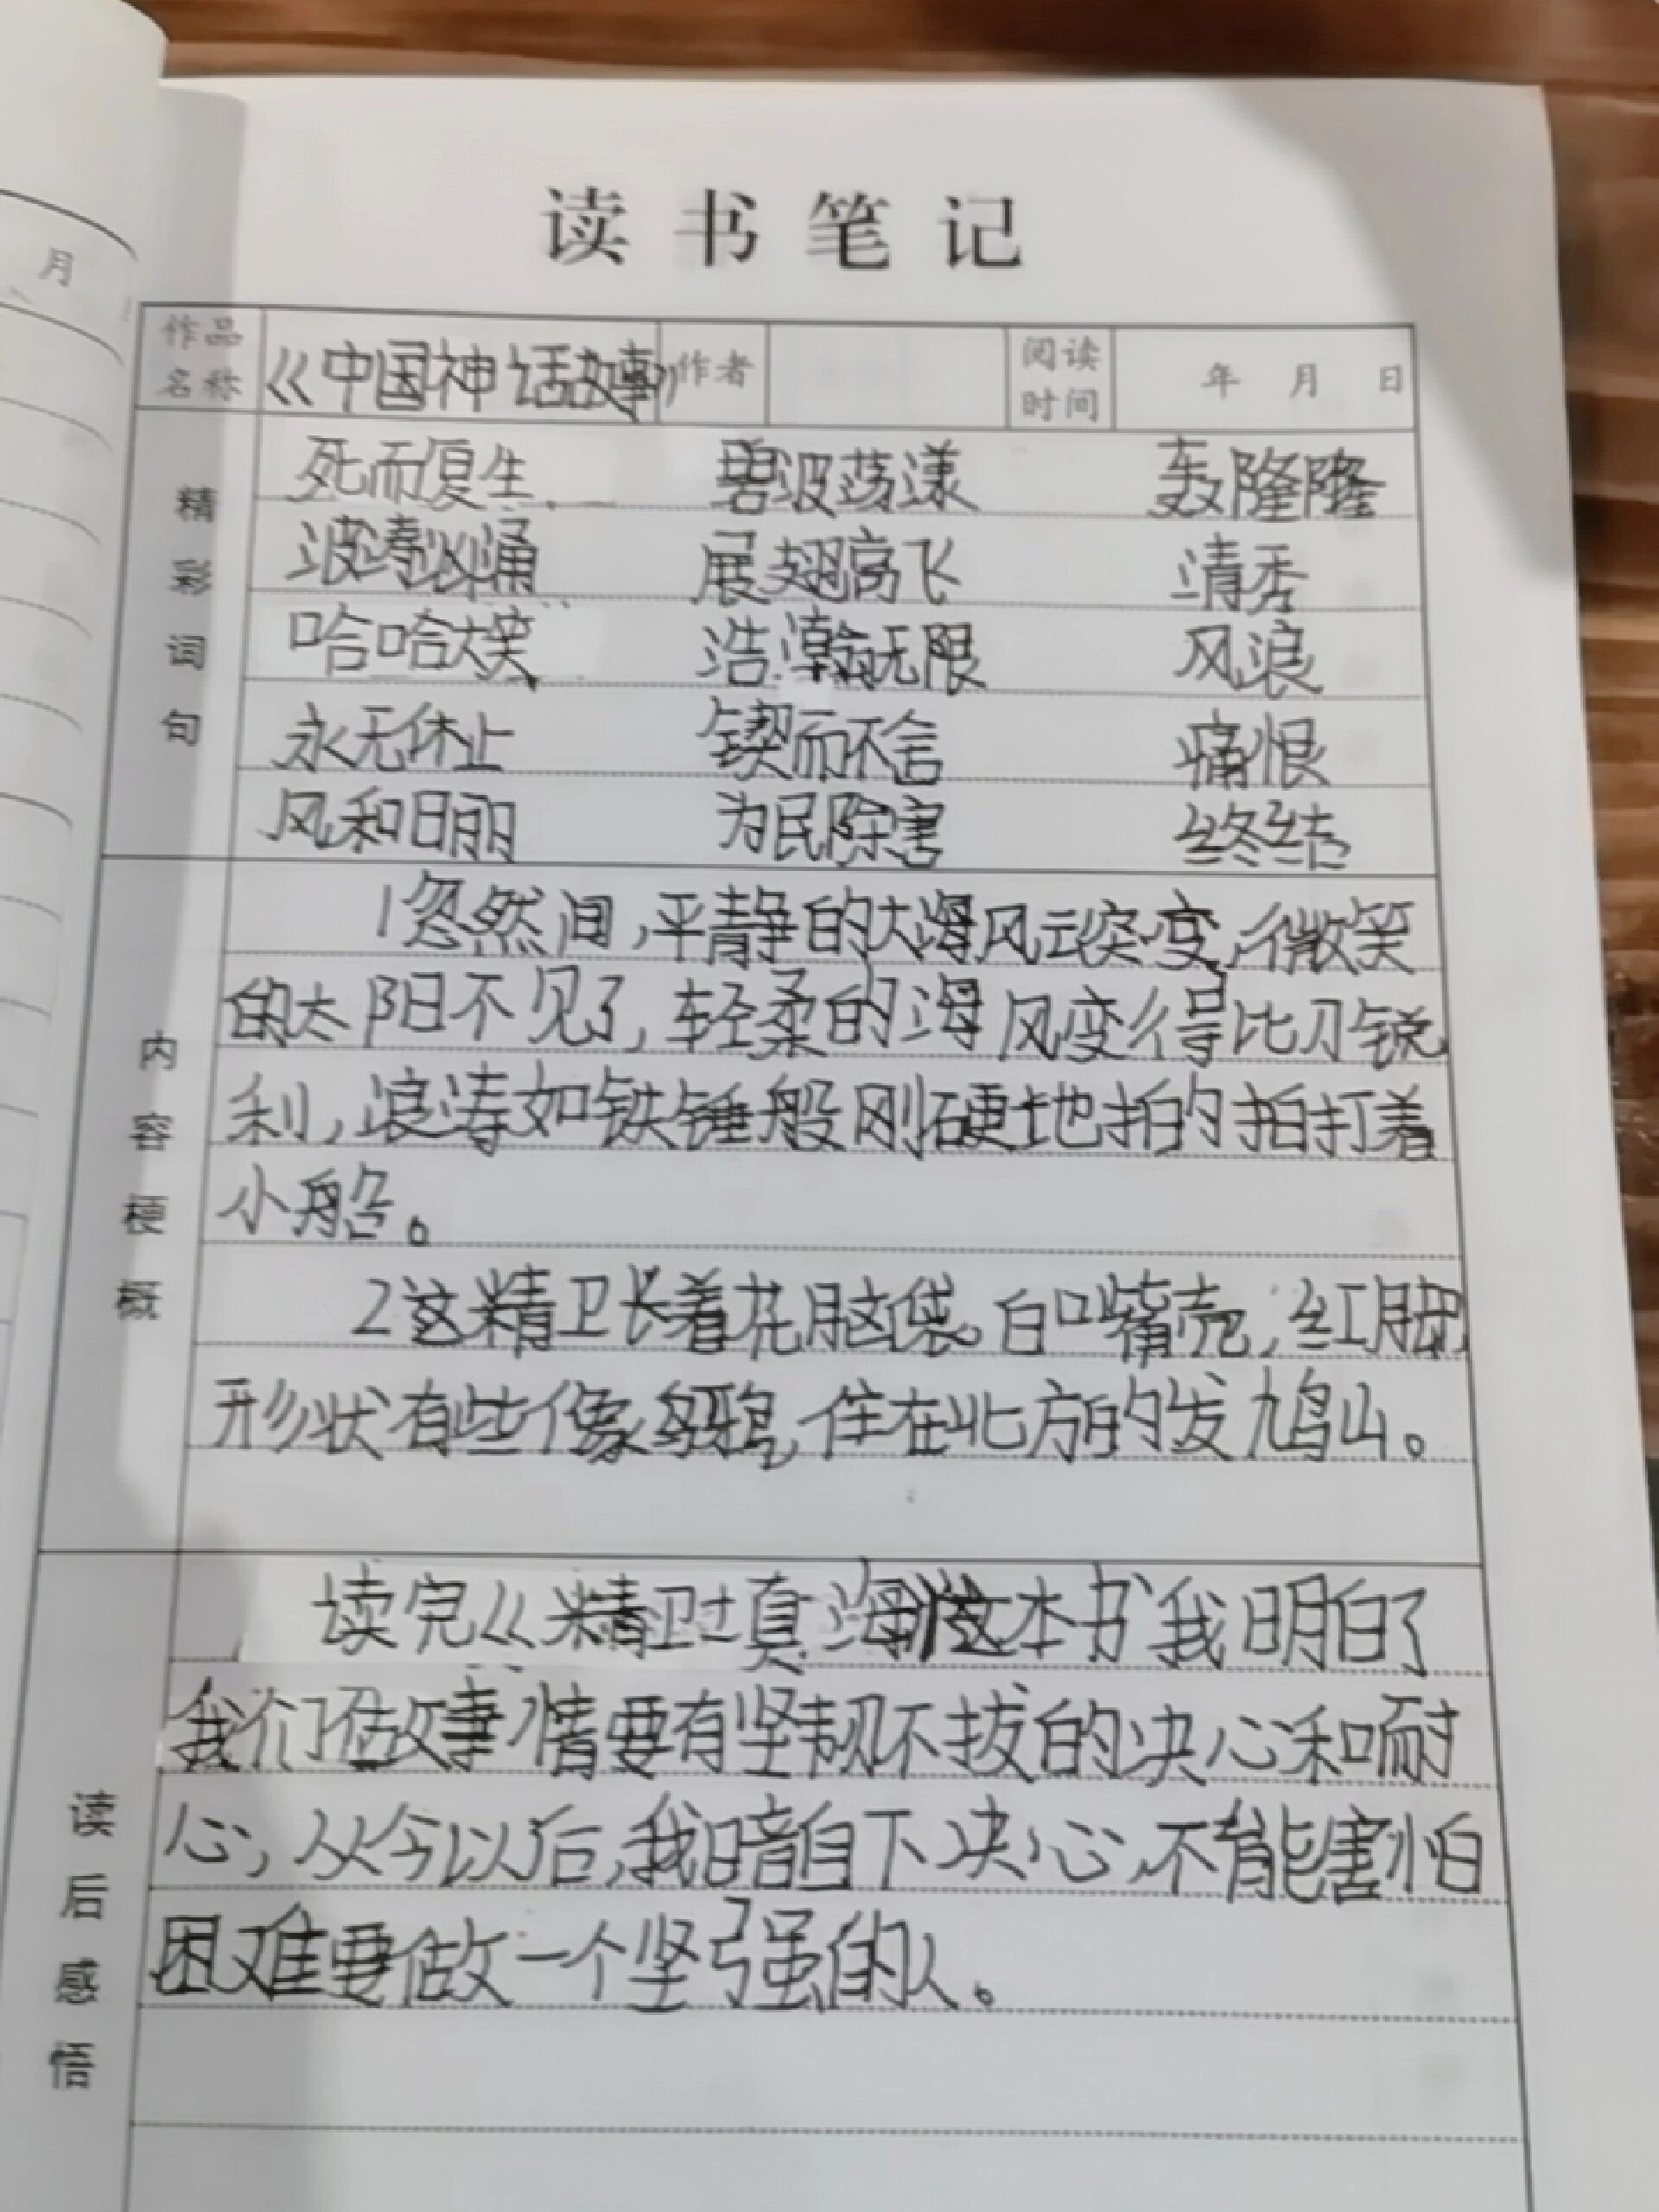 月
读书笔记
作品名称 《中国神话故事》 作者 阅读时间 年 月 日
精彩词句
死而复生 碧波荡漾 轰隆隆
波涛汹涌 展翅高飞 清秀
哈哈大笑 浩瀚无限 风浪
永无休止 锲而不舍 痛恨
风和日丽 为民除害 终结
内容梗概
1忽然间,平静的大海风云突变,微笑
的太阳不见了,轻柔的海风变得比刀锐
利,浪涛如铁锤般刚硬地拍的拍打着
小船。
2这精卫长着花脑袋。白嘴壳,红脚,
形状有些像乌鸦,住在北方的发鸠山。
读后感悟
读完《精卫填海》这本书我明白了
我们做事情要有坚韧不拔的决心和耐
心,从今以后,我暗自下决心,不能害怕
困难要做一个坚强的人。